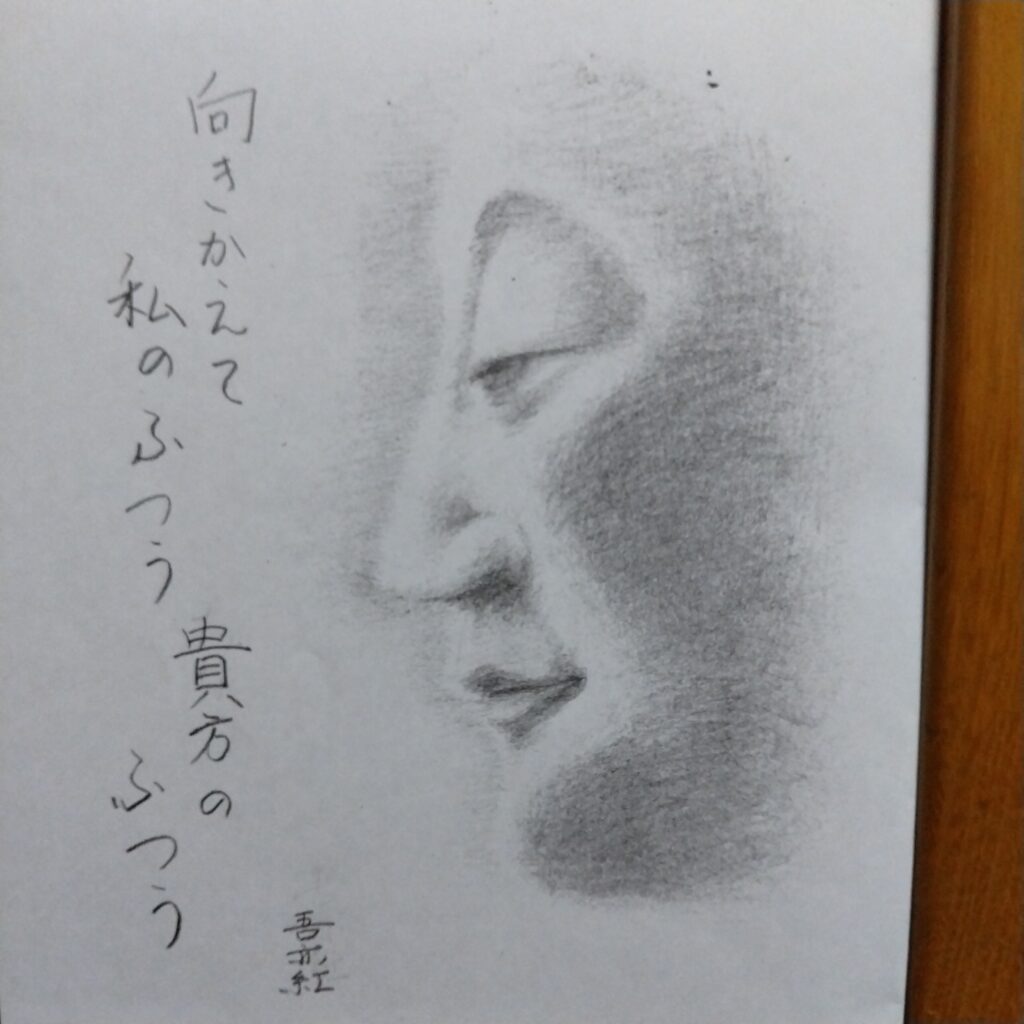 向きかえて
私のふつう
貴方の
ふつう
吾亦紅